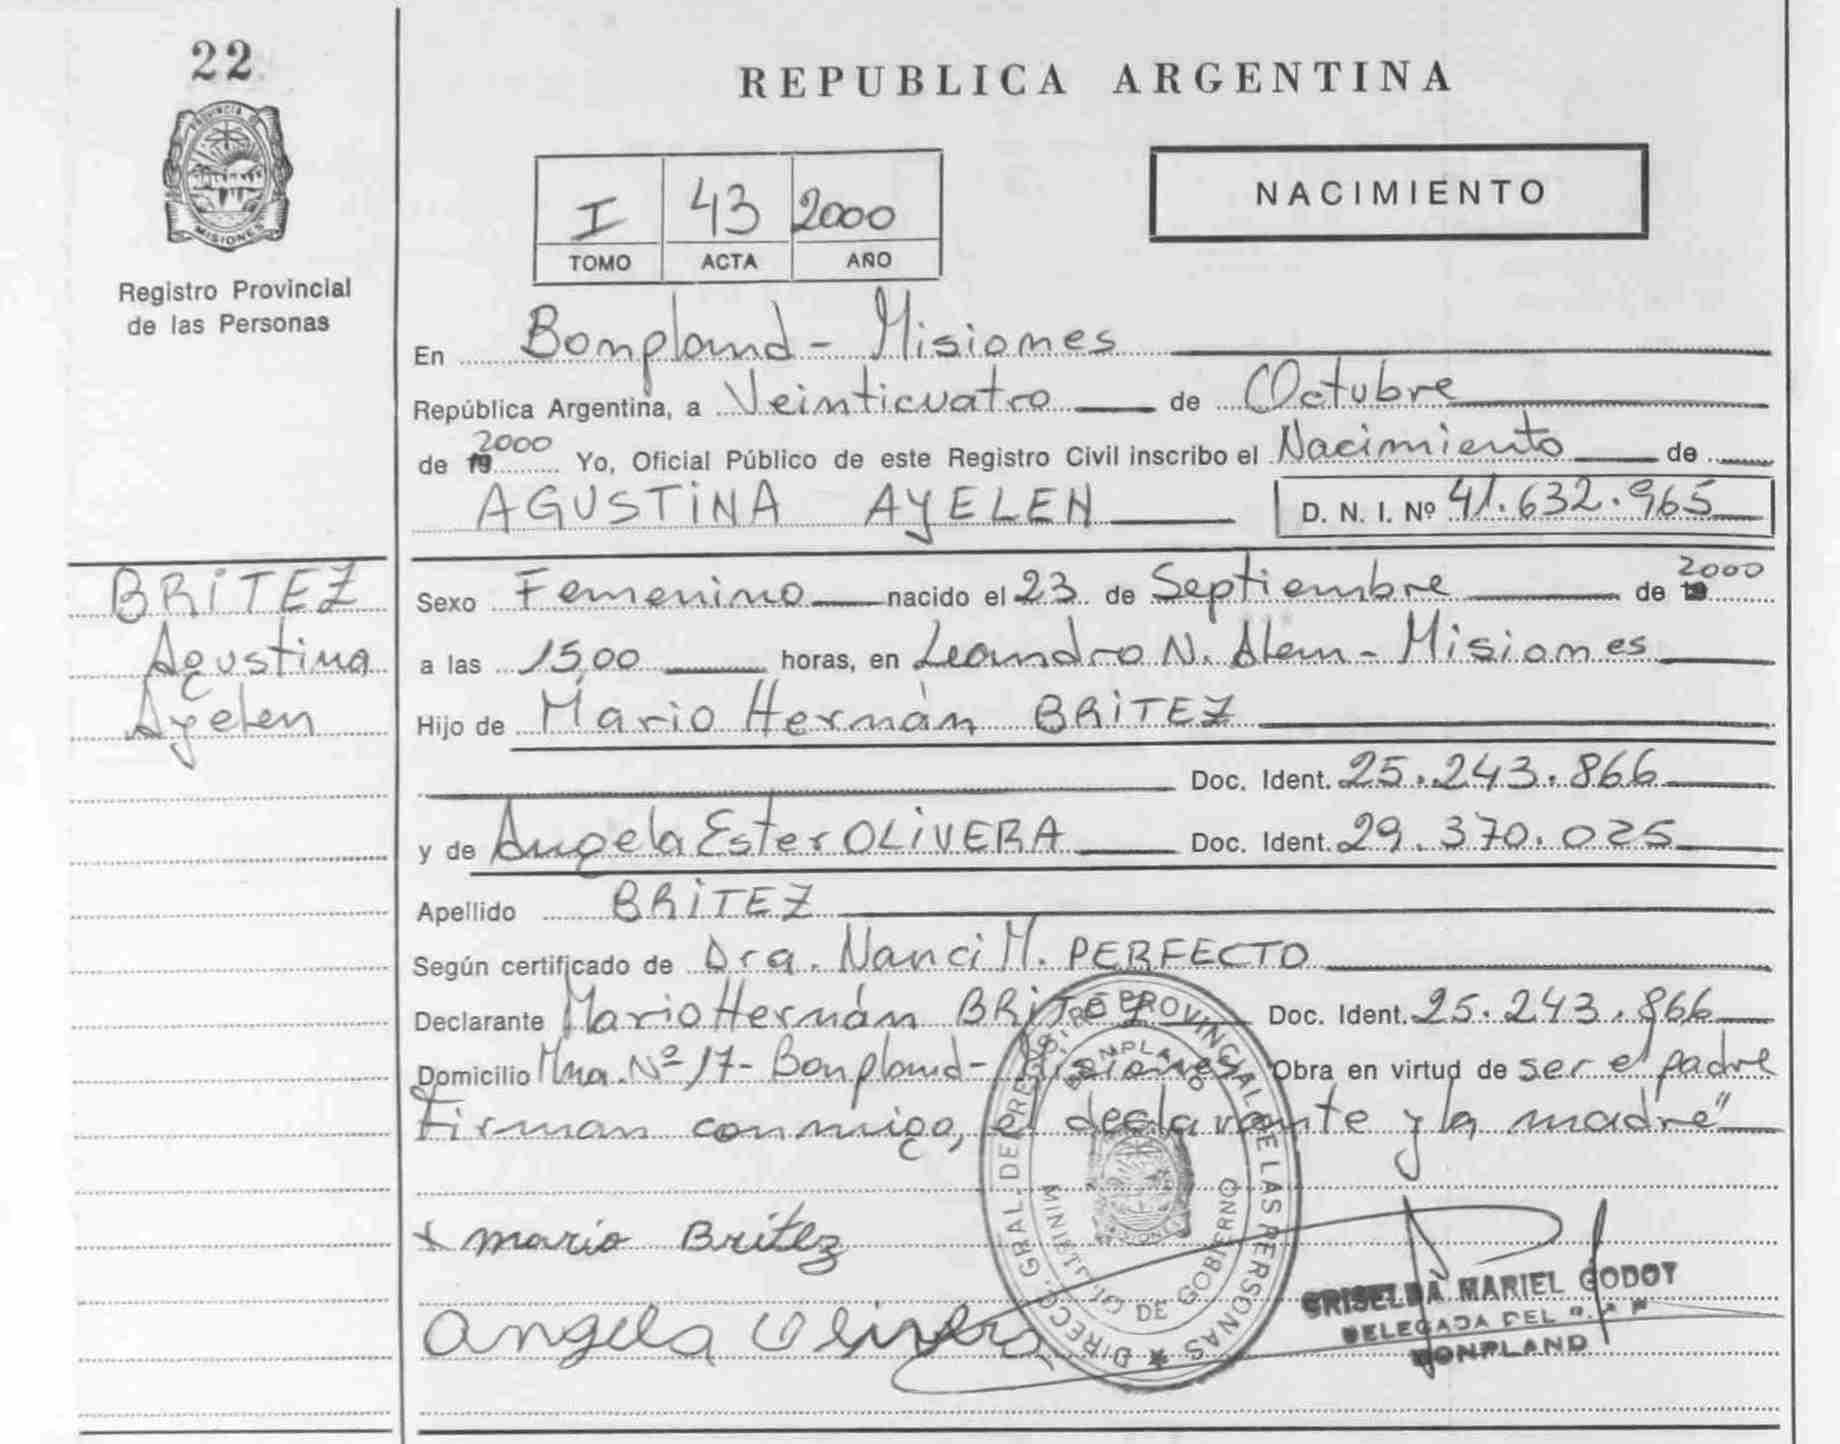 22
PROVINCIA DE
MISIONES
Registro Provincial
de las Personas
REPUBLICA ARGENTINA
I 43 2000
TOMO ACTA AÑO
NACIMIENTO
En Bonpland - Misiones
República Argentina, a Veinticuatro de Octubre
de 2000 19 Yo, Oficial Público de este Registro Civil inscribo el Nacimiento de
AGUSTINA AYELEN D. N. I. Nº 41.632.965
BRITEZ
Agustina
Ayelen
Sexo Femenino nacido el 23 de Septiembre de 2000 19
a las 15,00 horas, en Leandro N. Alem - Misiones
Hijo de Mario Hernán BRITEZ
Doc. Ident. 25.243.866
y de Angela Ester OLIVERA Doc. Ident. 29.370.025
Apellido BRITEZ
Según certificado de Dra. Nanci M. PERFECTO
Declarante Mario Hernán BRITEZ Doc. Ident. 25.243.866
Domicilio Mna. Nº 17 - Bonpland - Misiones Obra en virtud de ser el padre
Firman conmigo, el declarante y la madre"
DIRECC. GRAL. DE REGISTRO PROVINCIAL DE LAS PERSONAS
BONPLAND
MINIST. DE GOBIERNO
x mario Britez
angela Olivera
GRISELDA MARIEL GODOY
DELEGADA DEL
BONPLAND